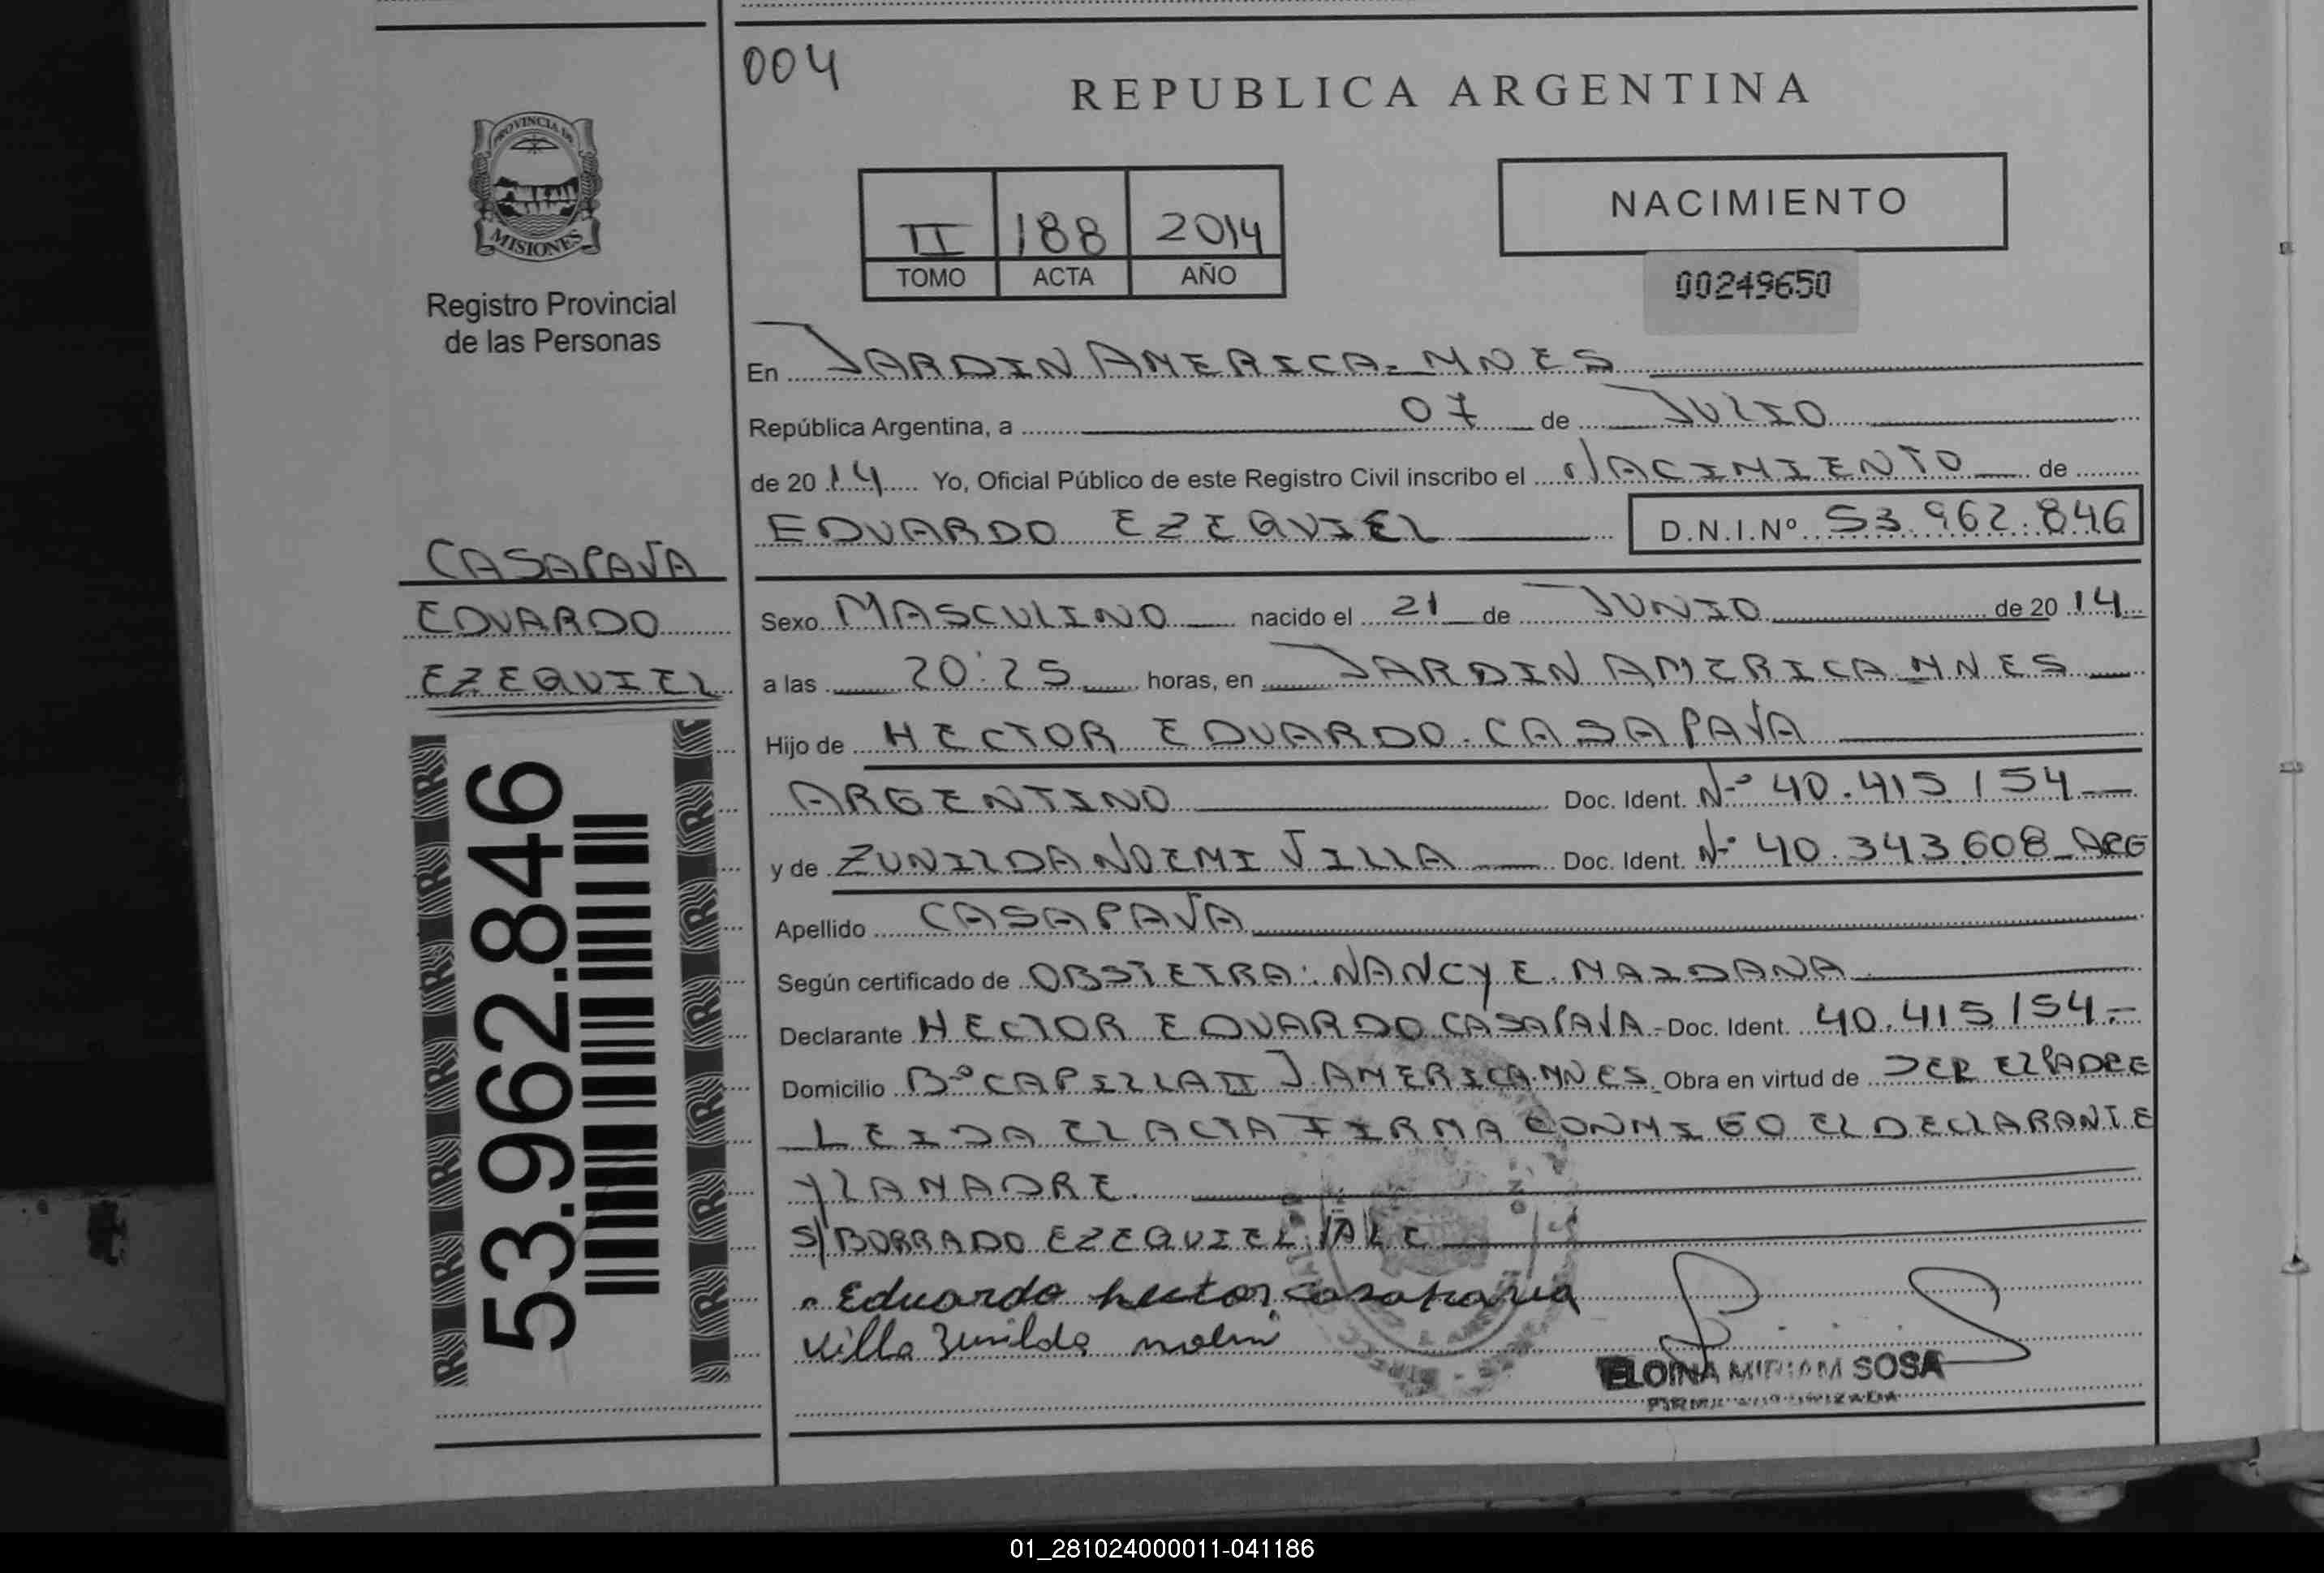 004
REPUBLICA ARGENTINA
PROVINCIA DE
MISIONES
Registro Provincial
de las Personas
II 188 2014
TOMO ACTA AÑO
NACIMIENTO
00249650
En JARDIN AMERICA - MNES
República Argentina, a 07 de JULIO
de 2014 Yo, Oficial Público de este Registro Civil inscribo el NACIMIENTO de
EDUARDO EZEQUIEL D.N.I.Nº 53.962.846
CASAPAVA
EDUARDO
EZEQUIEL
53.962.846
Sexo MASCULINO nacido el 21 de JUNIO de 2014
a las 20:25 horas, en JARDIN AMERICA MNES
Hijo de HECTOR EDUARDO CASAPAVA
ARGENTINO Doc. Ident. Nº 40.415154
y de ZUNILDA NOEMI VILLA Doc. Ident. Nº 40.343.608 ARG
Apellido CASAPAVA
Según certificado de OBSTETRA: NANCY E. MAIDANA
Declarante HECTOR EDUARDO CASAPAVA - Doc. Ident. 40.415154.-
Domicilio Bº CAPILLA II J. AMERICA MNES Obra en virtud de SER EL PADRE
LEIDA EL ACTA FIRMA CONMIGO EL DECLARANTE
Y LA MADRE.
S/BORRADO EZEQUIEL VALE
Eduardo hector casapava
Villa Zunilda noemi
ELOINA MIRIAM SOSA
FIRMA AUTORIZADA
01_281024000011-041186